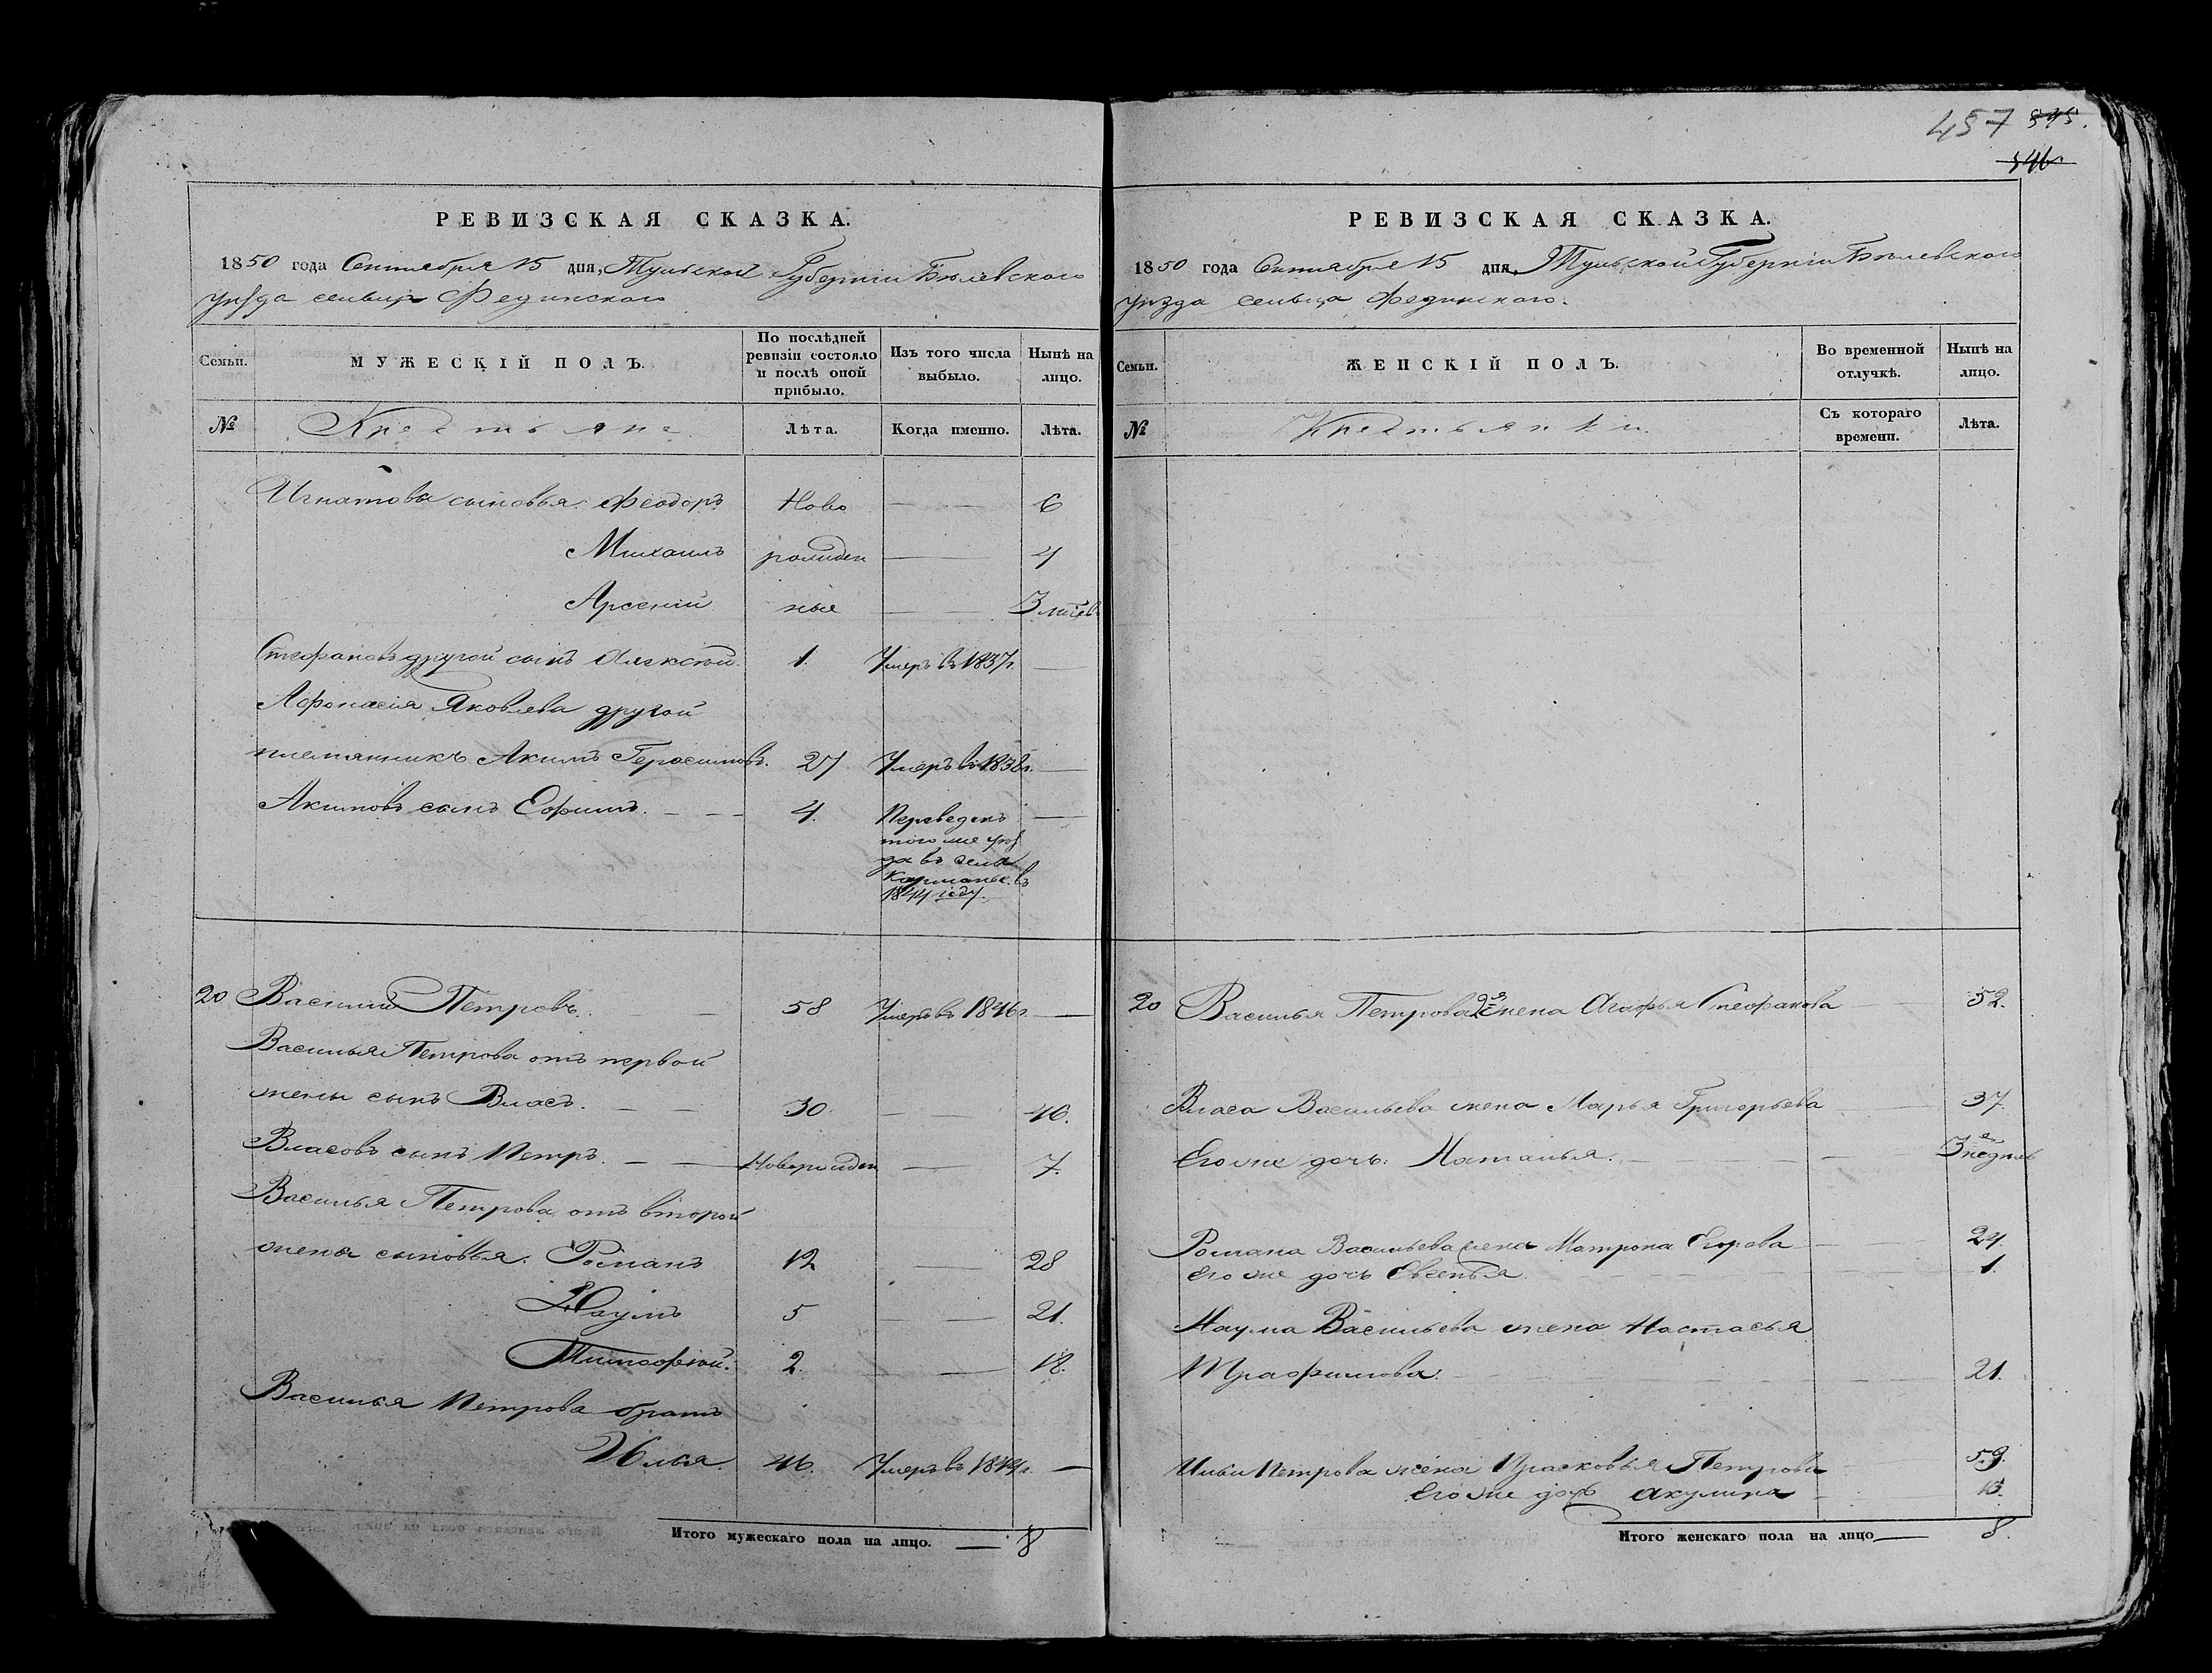 457 545.
546
РЕВИЗСКАЯ СКАЗКА.
1850 года Сентября 15 дня, Тульской Губерніи Бѣлевскаго
уѣзда сельца Фединскаго
Семьи. МУЖЕСКІЙ ПОЛЪ. По послѣдней ревизіи состояло и послѣ оной прибыло. Изъ того числа выбыло. Нынѣ на лицо.
№ Крестьяне Лѣта. Когда именно. Лѣта.
Игнатовы сыновья: Феодоръ Ново — 6
Михаилъ рожден — 4
Арсеній ные — 3 мѣсев
Стефановъ другой сынъ Алексѣй. 1. Умеръ въ 1837г. —
Афонасія Яковлева другой
племянникъ Акимъ Герасимовъ. 27. Умеръ въ 1838г. —
Акимовъ сынъ Ефимъ. — — 4. Переведенъ —
того же уѣз
да въ сельц
1844 году.
20 Василий Петровъ. — 58 Умеръ въ 1846г. —
Василья Петрова отъ первой
жены сынъ Власъ. — — 30. — 46.
Власовъ сынъ Петръ. — — Новорожден — 7.
Василья Петрова отъ второй
жены сыновья: Романъ 12 — 28
Наумъ 5 — 21.
Тимофей. 2. — 18.
Василья Петрова братъ
Илья. 46. Умеръ въ 1844г. —
Итого мужескаго пола на лицо. — 8
РЕВИЗСКАЯ СКАЗКА.
1850 года Сентября 15 дня, Тульской Губерніи Бѣлевскаго
уѣзда сельца Фединскаго.
Семьи. ЖЕНСКІЙ ПОЛЪ. Во временной отлучкѣ. Нынѣ на лицо.
№ Крестьянки. Съ котораго времени. Лѣта.
20 Василья Петрова 2я жена Агафья Стефанова — 52.
Власа Васильева жена Марья Григорьева — 37.
Его же дочь: Наталья. — 3хъ недѣль
Романа Васильева жена Матрона Егорова — 24.
Его же дочь Евсенья — 1.
Наума Васильева жена Настасья
Трофимова. — 21.
Ильи Петрова жена Прасковья Петрова — 59.
Его же дочь Акулина — 13.
Итого женскаго пола на лицо — 8.